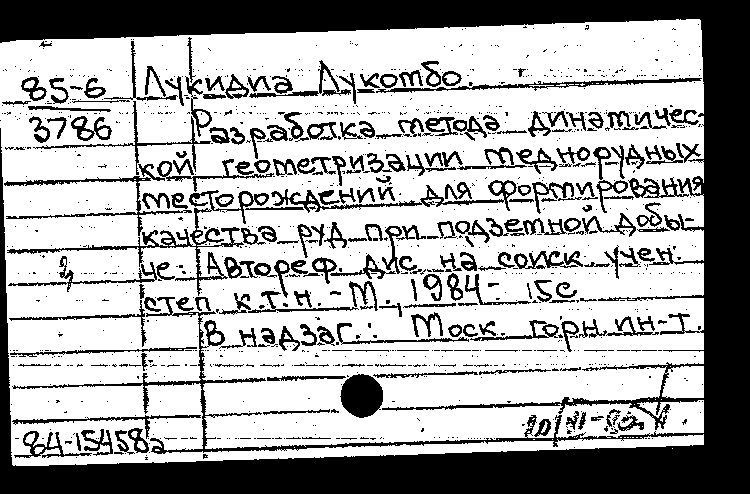 85-6 Лукидиа Лукомбо.
3786 Разработка метода динамичес-
кой геометризации меднорудных
месторождений для формирования
качества руд при подземной добы-
че: Автореф. дис. на соиск. учен.
степ. к.т.н. - М., 1984 - 15с.
В надзаг.: Моск. горн. ин-т.
84-15458а